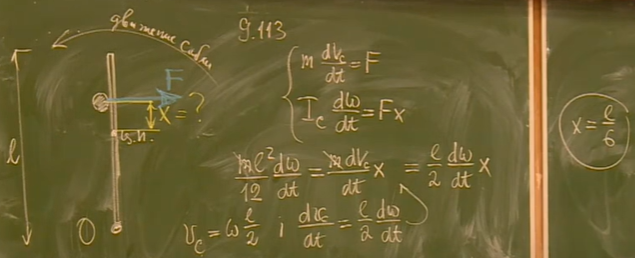 9.113
движение сабли
F
x = ?
ц.м.
l
O
m dv_c/dt = F
I_c dω/dt = Fx
ml²/12 dω/dt = m dv_c/dt x = l/2 dω/dt x
v_c = ω l/2 ; dv_c/dt = l/2 dω/dt
x = l/6